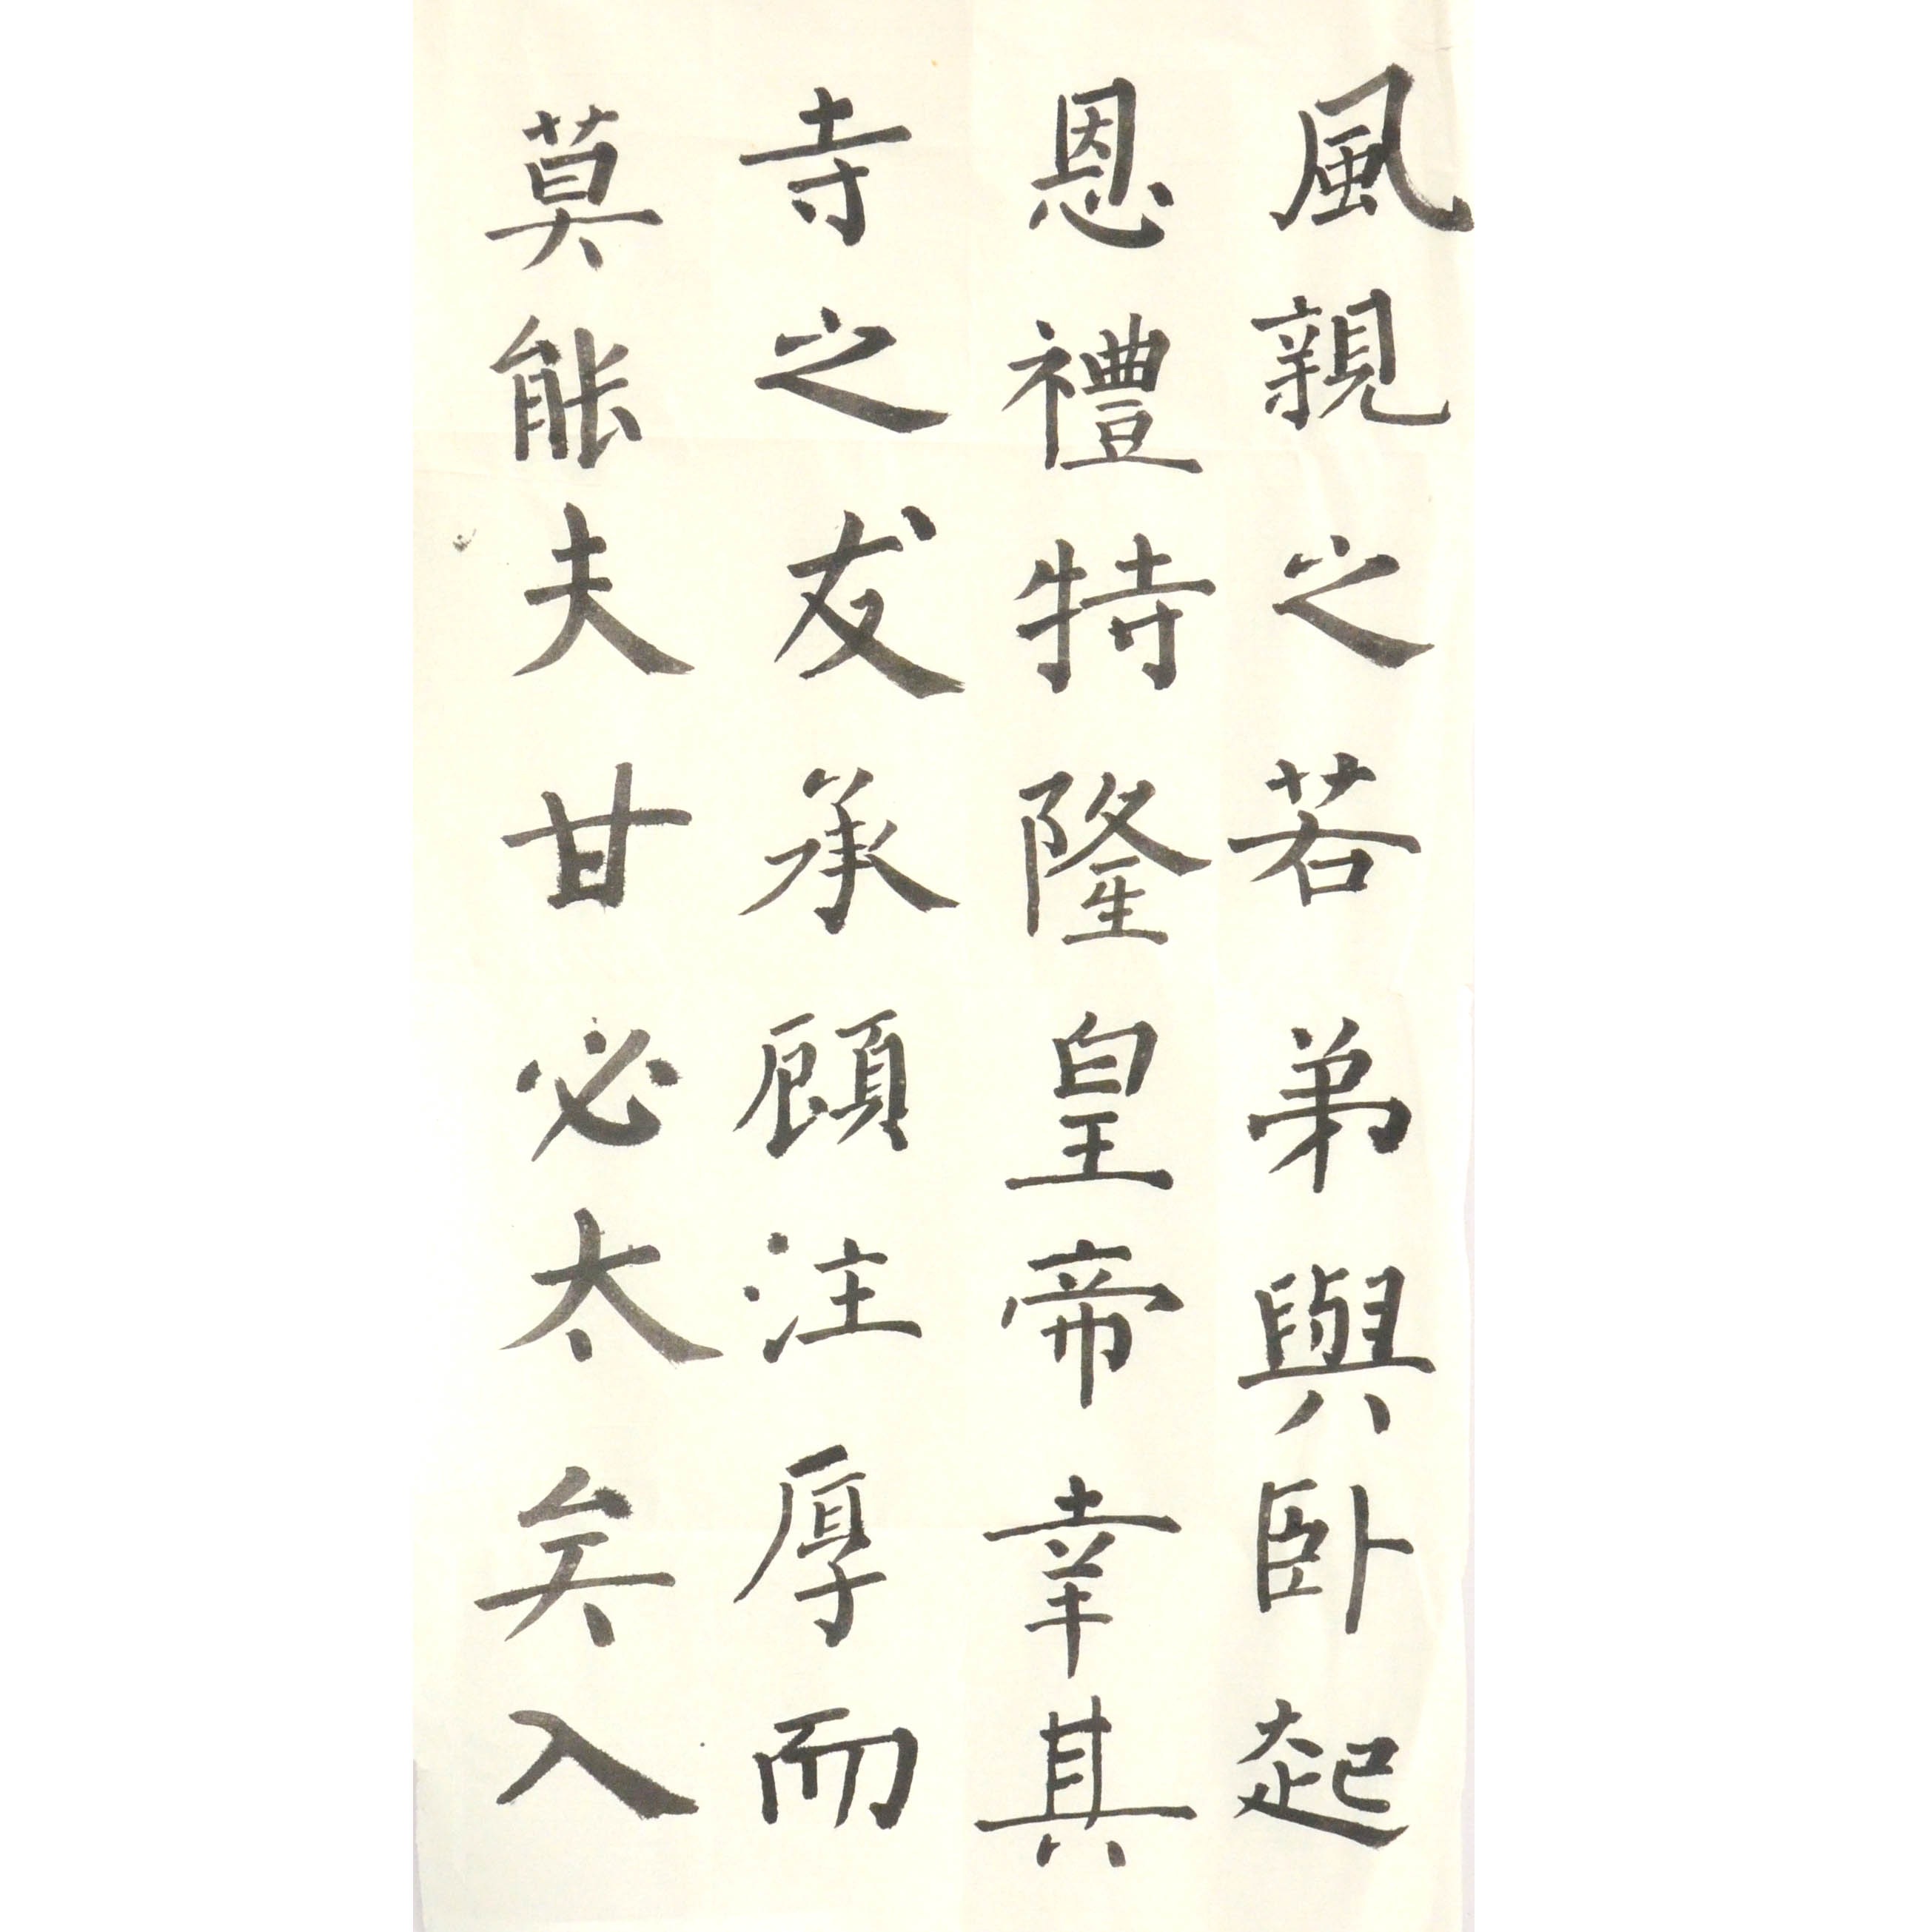 風親之若弟與卧起
恩禮特隆皇帝幸其
寺之友承顧注厚而
莫能夫甘必太矣入